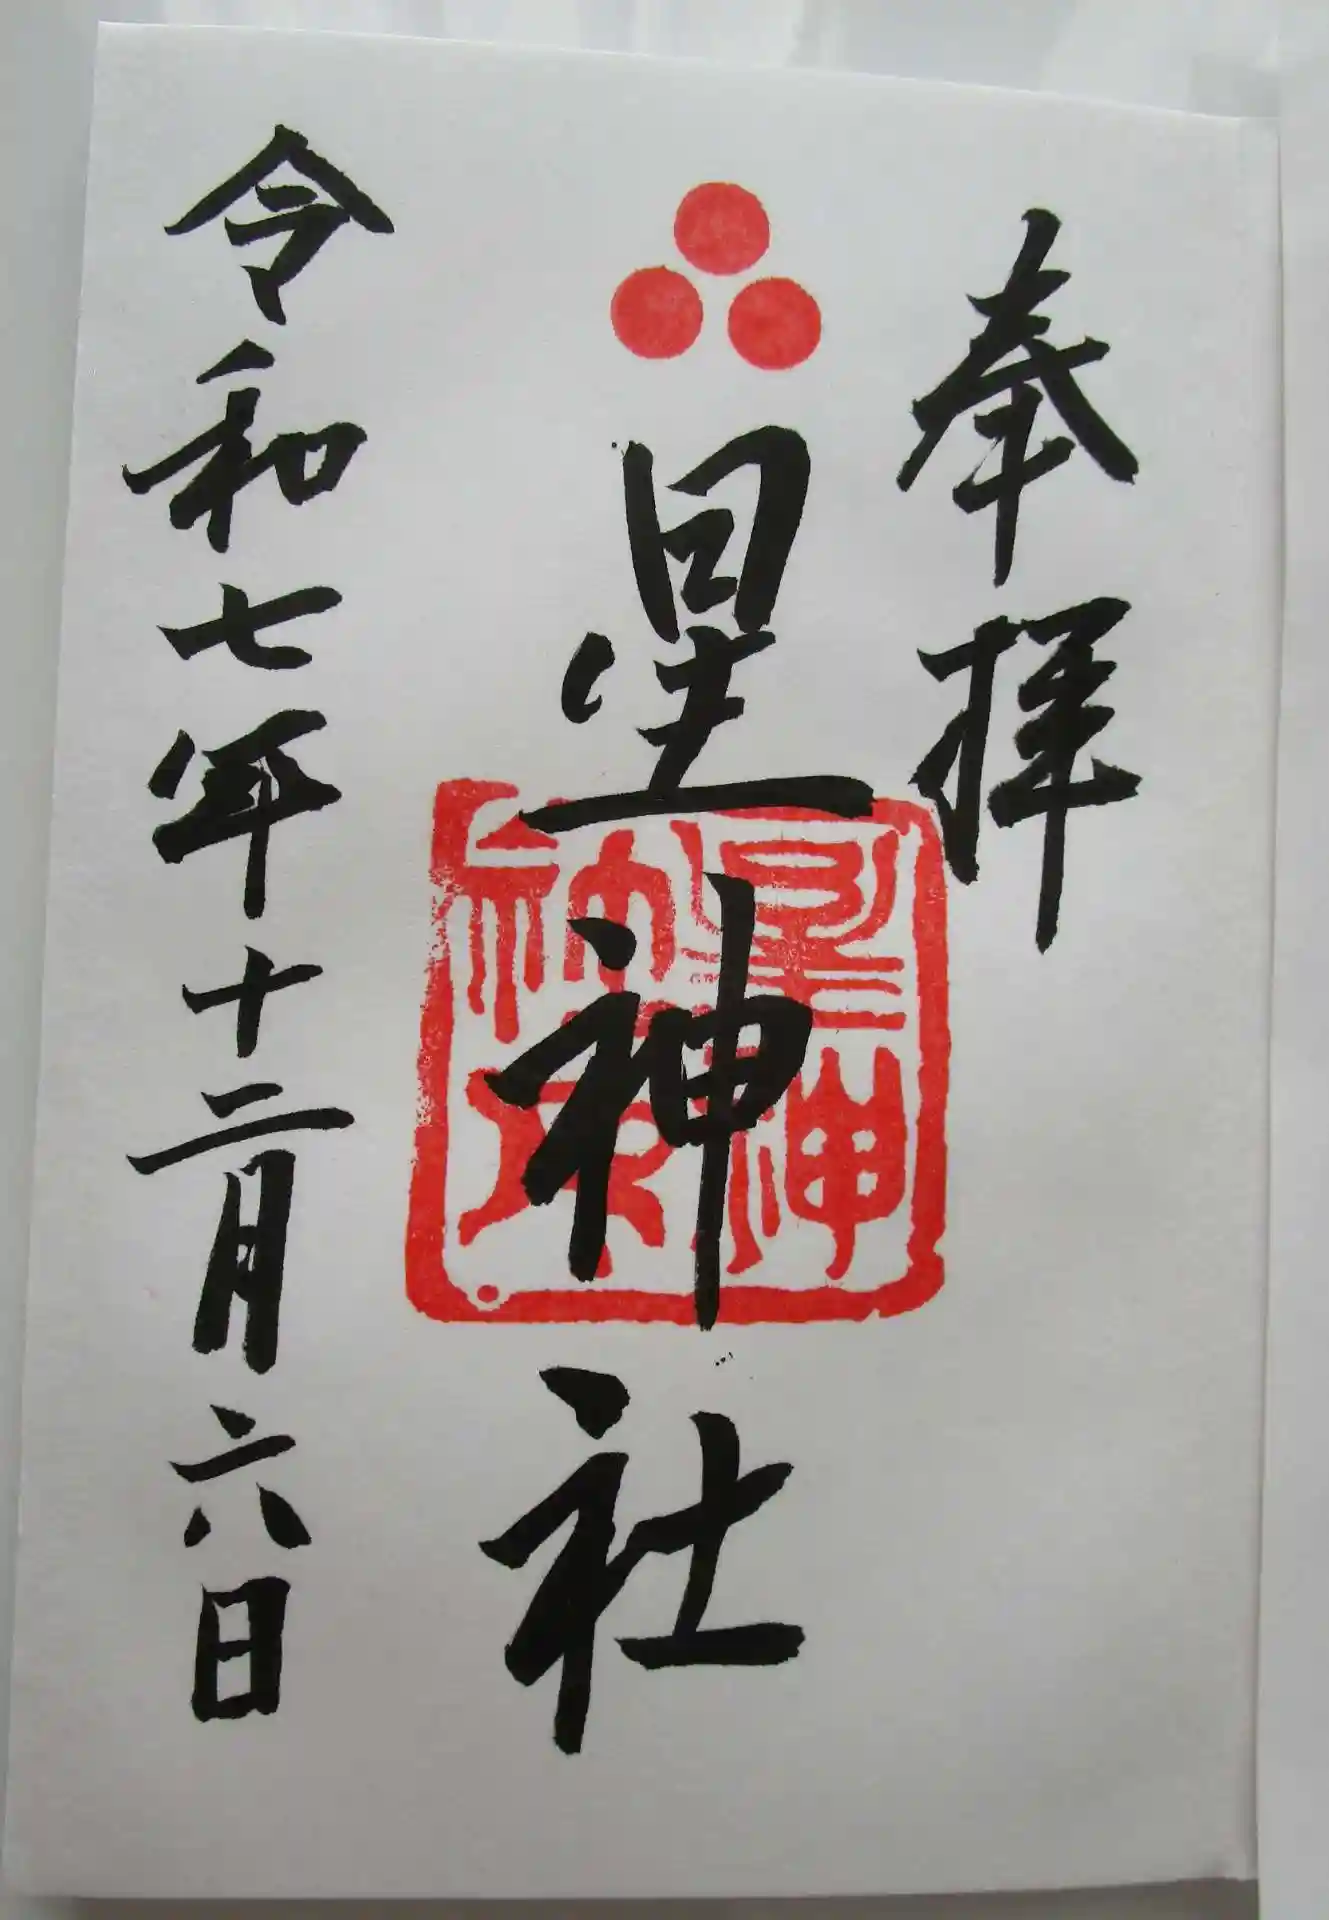 奉拝
星神社
令和七年十二月六日